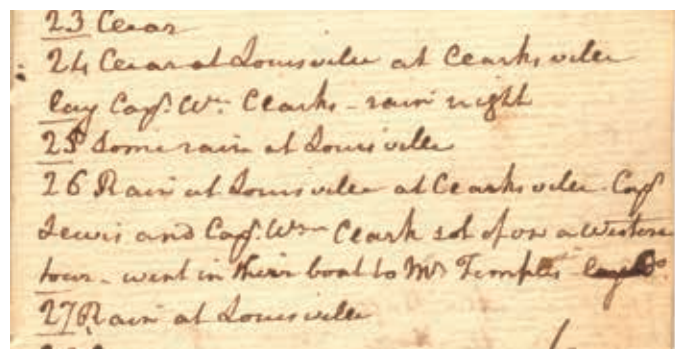 23 Clear
24 Clear at Louisville at Clarksville
lay Capt. Wm. Clarks - rain night
25 Some rain at Louisville
26 Rain at Louisville at Clarksville. Capt
Lewis and Capt. Wm Clark set of on a Western
tour - went in their boat to Mr Temples
27 Rain at Louisville